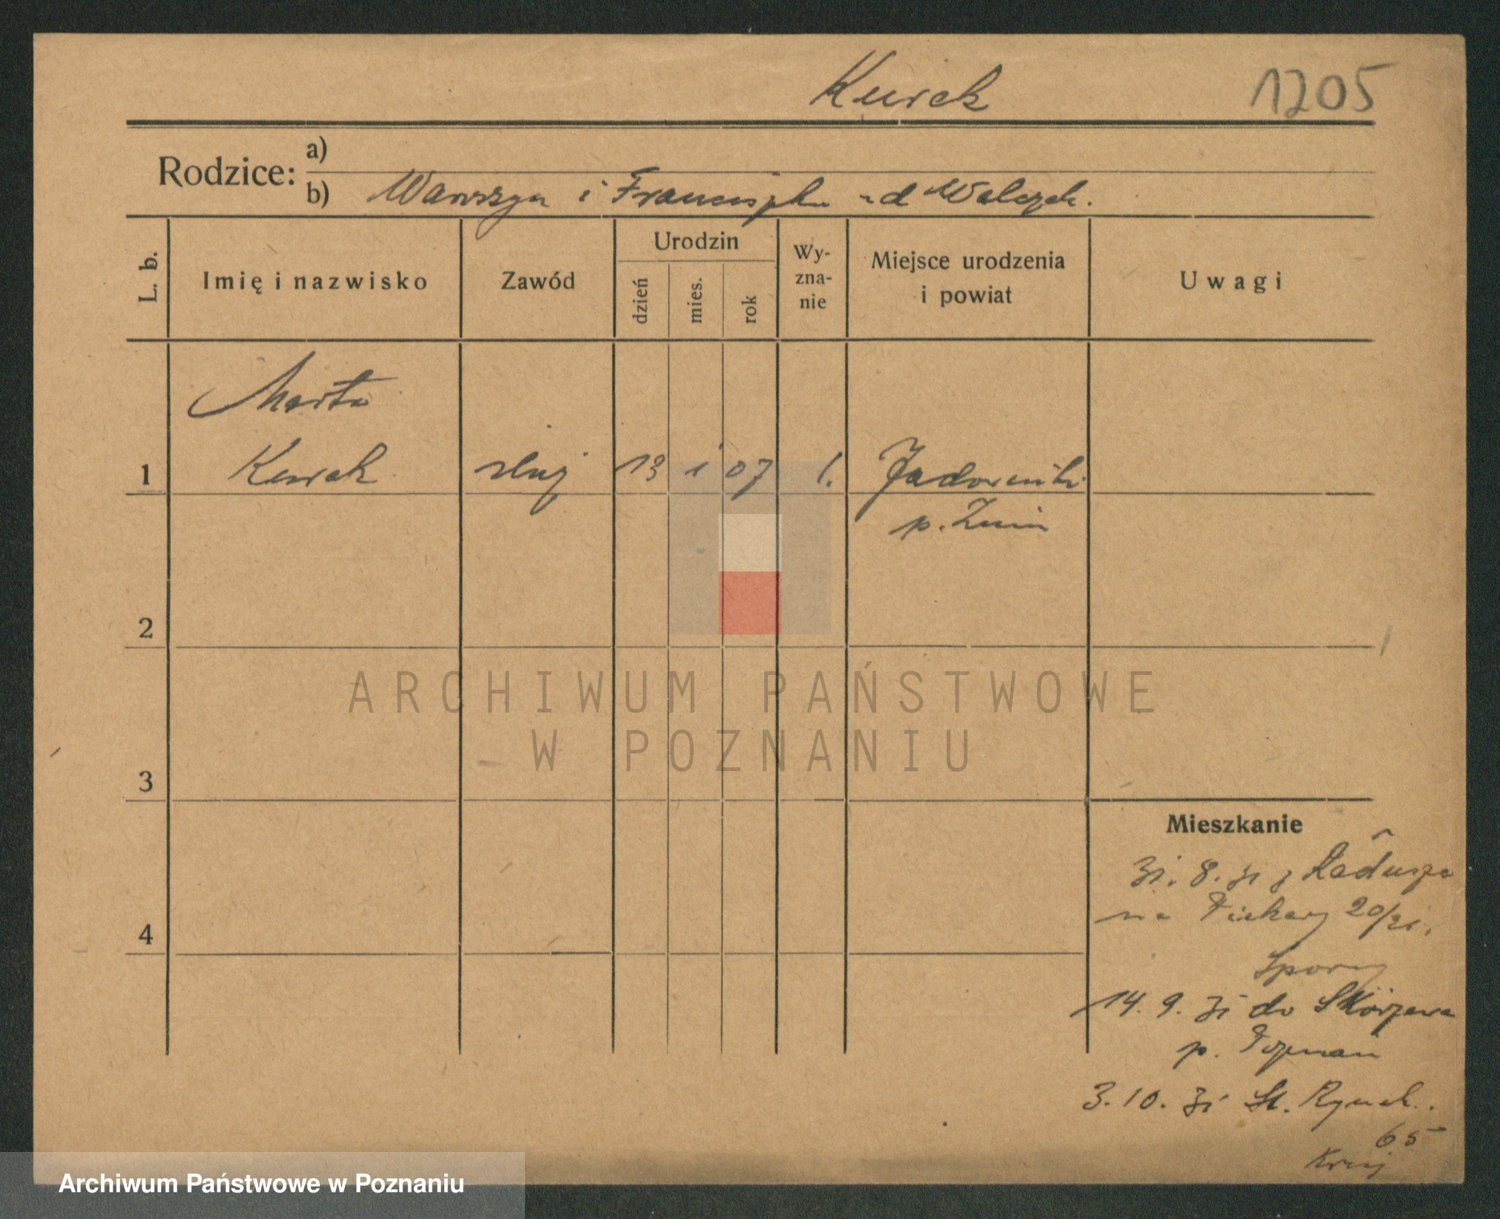 Kurek
1205
Rodzice:
a)
b) Wawrzyn i Franciszka z d Walczak.
L. b.
Imię i nazwisko
Zawód
Urodzin
dzień
mies.
rok
Wy-
zna-
nie
Miejsce urodzenia
i powiat
Uwagi
Marta
1 Kurek służ 13 1 07 Jadowniki
p. Żnin
2
ARCHIWUM PAŃSTWOWE
W POZNANIU
3
Mieszkanie
31. 8. 31 z
na Piekary 20/21.
4
14. 9. 31 do Skórzewa
p. Poznań
3. 10. 31 St. Rynek.
65
Archiwum Państwowe w Poznaniu